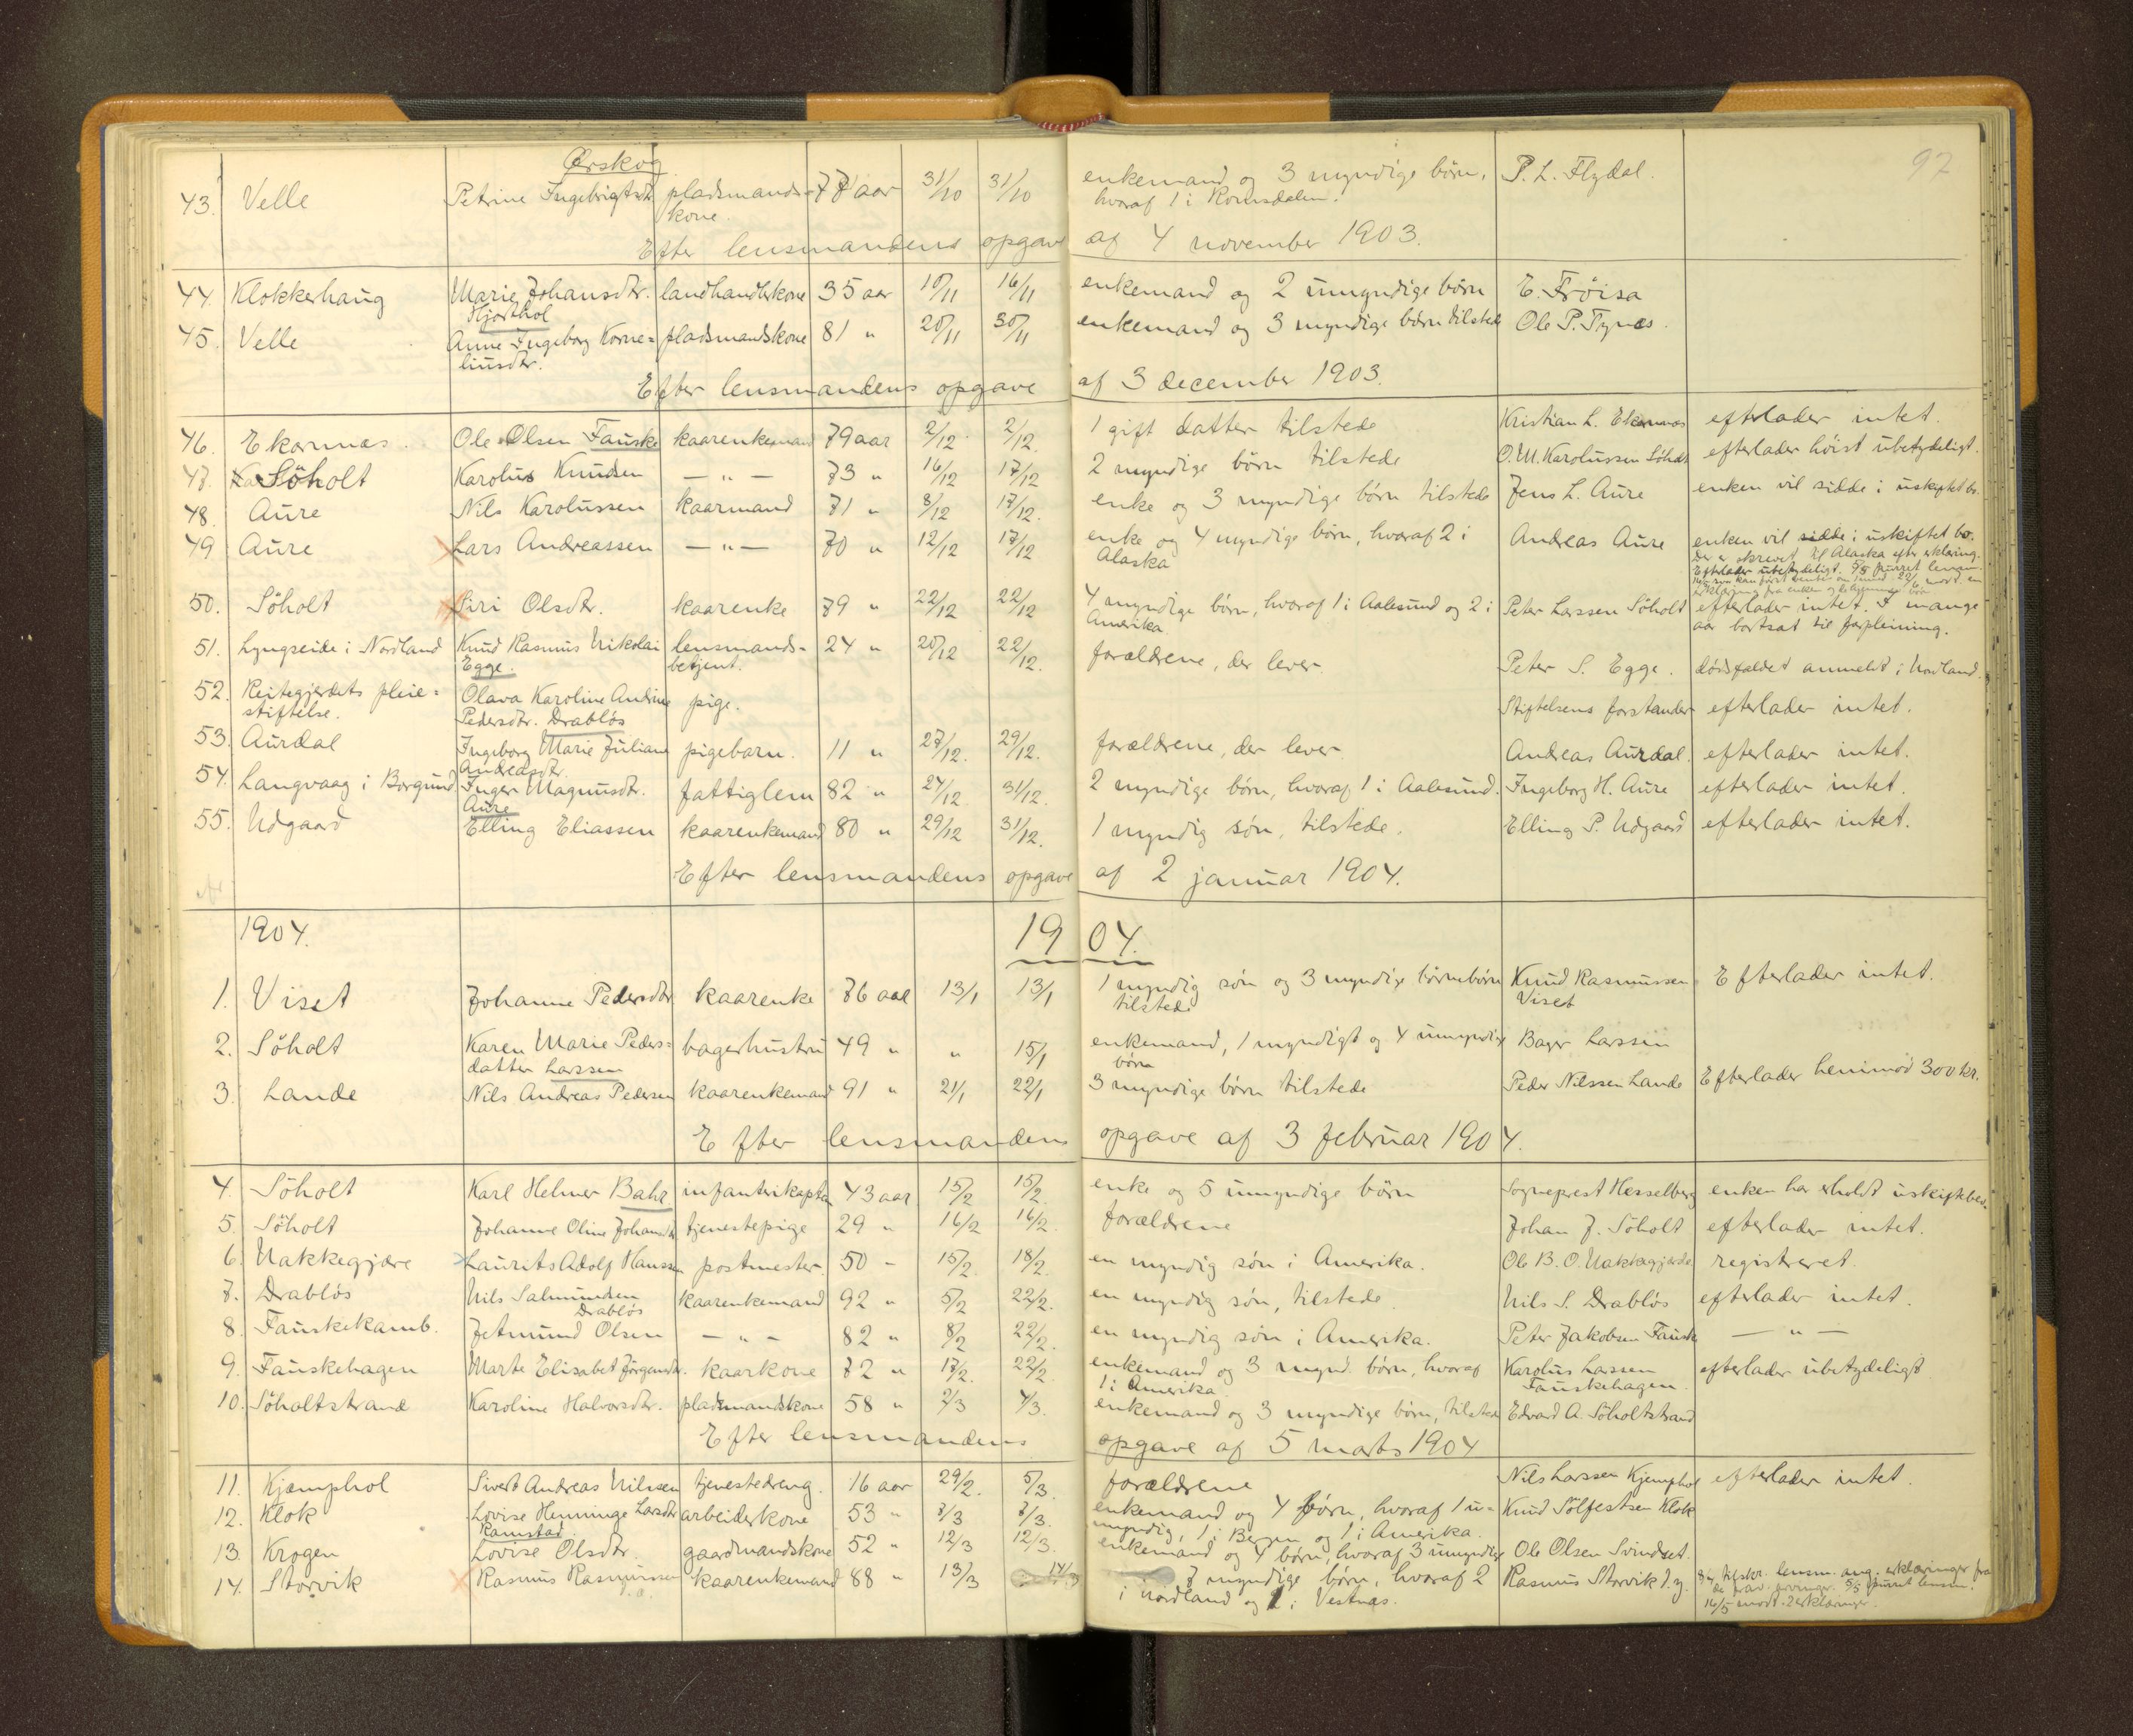 97
Ørskog
43. Velle Petrine Ingebrigtsdtr. pladsmands- 77 aar 31/10 31/10 enkemand og 3 myndige børn, P. L. Flydal.
kone. hvoraf 1 i Romsdalen.
Efter lensmandens opgave af 4 november 1903.
44. Klokkerhaug Marie Johansdtr. landhandlerkone 35 aar 10/11 16/11 enkemand og 2 umyndige børn E. Frøisa
Hjorthol
45. Velle Anne Ingeborg Korne= pladsmandskone 81 " 20/11 30/11 enkemand og 3 myndige børn tilstede Ole P. Tynes.
liusdtr.
Efter lensmandens opgave af 3 december 1903.
46. Ekornnæs. Ole Olsen Fauske kaarenkemand 79 aar 2/12 2/12. 1 gift datter tilstede Kristian L. Ekornnæs efterlader intet.
47. Søholt Karolus Knudsen — " — 73 " 16/12 17/12 2 myndige børn tilstede O. M. Karolussen Søholt efterlader høist ubetydeligt.
48. Aure Nils Karolussen kaarmand 71 " 8/12 17/12. enke og 3 myndige børn tilstede Jens L. Aure enken vil sidde i uskiftet bo.
49 Aure Lars Andreassen — " — 70 " 12/12 17/12 enke og 4 myndige børn, hvoraf 2 i Andreas Aure enken vil sidde i uskiftet bo.
Alaska Der er skrevet til Alaska efter erklæring.
Efterlader ubetydeligt. 5/5 purret lensm.
50. Søholt Siri Olsdtr. kaarenke 79 " 22/12 22/12 4 myndige børn, hvoraf 1 i Aalesund og 2 i Peter Larssen Søholt efterlader intet. I mange
Amerika. aar bortsat til forpleining.
51. Lyngseide i Nordland Knud Rasmus Nikolai lensmands- 24 " 20/12 22/12. forældrene, der lever Peter S. Egge. dødsfaldet anmeldt i Nordland.
Egge. betjent.
52. Reitegjerdets pleie= Olava Karoline Andrine pige. Stiftelsens forstander efterlader intet.
stiftelse. Pedersdtr. Drabløs
53. Aurdal Ingeborg Marie Juliane pigebarn. 11 " 27/12. 29/12. forældrene, der lever Andreas Aurdal. efterlader intet.
Andreasdtr.
54. Langvaag i Borgund Inger Magnusdtr. fattiglem 82 " 24/12 31/12. 2 myndige børn, hvoraf 1 i Aalesund. Ingeborg H. Aure efterlader intet.
Aure
55. Udgaard Elling Eliassen kaarenkemand 80 " 29/12 31/12. 1 myndig søn, tilstede. Elling P. Udgaard efterlader intet.
Efter lensmandens opgave af 2 januar 1904.
1904. 1904.
1. Viset Johanne Pedersdtr kaarenke 76 aar 13/1 13/1 1 myndig søn og 3 myndige børnebørn Knud Rasmussen Efterlader intet.
tilstede Viset
2. Søholt Karen Marie Peders= bagerhustru 49 " " 15/1 enkemand, 1 myndigt og 4 umyndige Bager Larssen
datter Larssen børn
3. Lande Nils Andreas Pedersen kaarenkemand 91 " 21/1 22/1 3 myndige børn tilstede Peder Nilssen Lande Efterlader henimod 300 kr.
Efter lensmandens opgave af 3 februar 1904.
4. Søholt Karl Helmer Bahr infanterikaptein 43 aar 15/2 15/2. enke og 5 umyndige børn Sogneprest Hesselberg enken har erholdt uskiftebev.
5. Søholt Johanne Oline Johansdtr tjenestepige 29 " 16/2 16/2. forældrene Johan J. Søholt efterlader intet.
6. Nakkegjære Laurits Adolf Hanssen postmester. 50 - 15/2. 18/2. en myndig søn i Amerika. Ole B. O. Nakkegjærde registreret.
7. Drabløs Nils Salmundsen kaarenkemand 92 " 5/2 22/2. en myndig søn, tilstede. Nils S. Drabløs efterlader intet.
Drabløs
8. Fauskekamb. Jetmund Olsen — " — 82 " 8/2 22/2. en myndig søn i Amerika. Peter Jakobsen Fauske — " —
9. Fauskehagen Marte Elisabet Jørgensdtr. kaarkone 72 " 17/2. 22/2. enkemand og 3 mynd. børn, hvoraf Karolus Larssen efterlader ubetydeligt
1 i Amerika. Fauskehagen.
10. Søholtstrand Karoline Halvorsdtr. pladsmandskone 58 " 2/3 4/3. enkemand og 3 myndige børn, tilstede Edvard A. Søholtstrand
Efter lensmandens opgave af 5 marts 1904
11. Kjæmphol Sivert Andreas Nilssen tjenestedreng. 16 aar 29/2. 5/3. forældrene Nils Larssen Kjemphol efterlader intet.
12. Klok Lovise Henninge Larsdtr arbeiderkone 53 " 7/3 7/3. enkemand og 4 børn, hvoraf 1 u= Knud Sølfestsen Klok
Ramstad. myndig, 1 i Bergen og 1 i Amerika.
13. Krogen Lovise Olsdtr. gaardmandskone 52 " 12/3 12/3. enkemand og 4 børn, hvoraf 3 umyndige Ole Olsen Svindset.
14. Storvik Rasmus Rasmussen kaarenkemand 88 " 13/3 14/3 7 myndige børn, hvoraf 2 Rasmus Storvik d. y.
i Nordland og 1 i Vestnæs. 16/5 modt. 2 erklæringer.